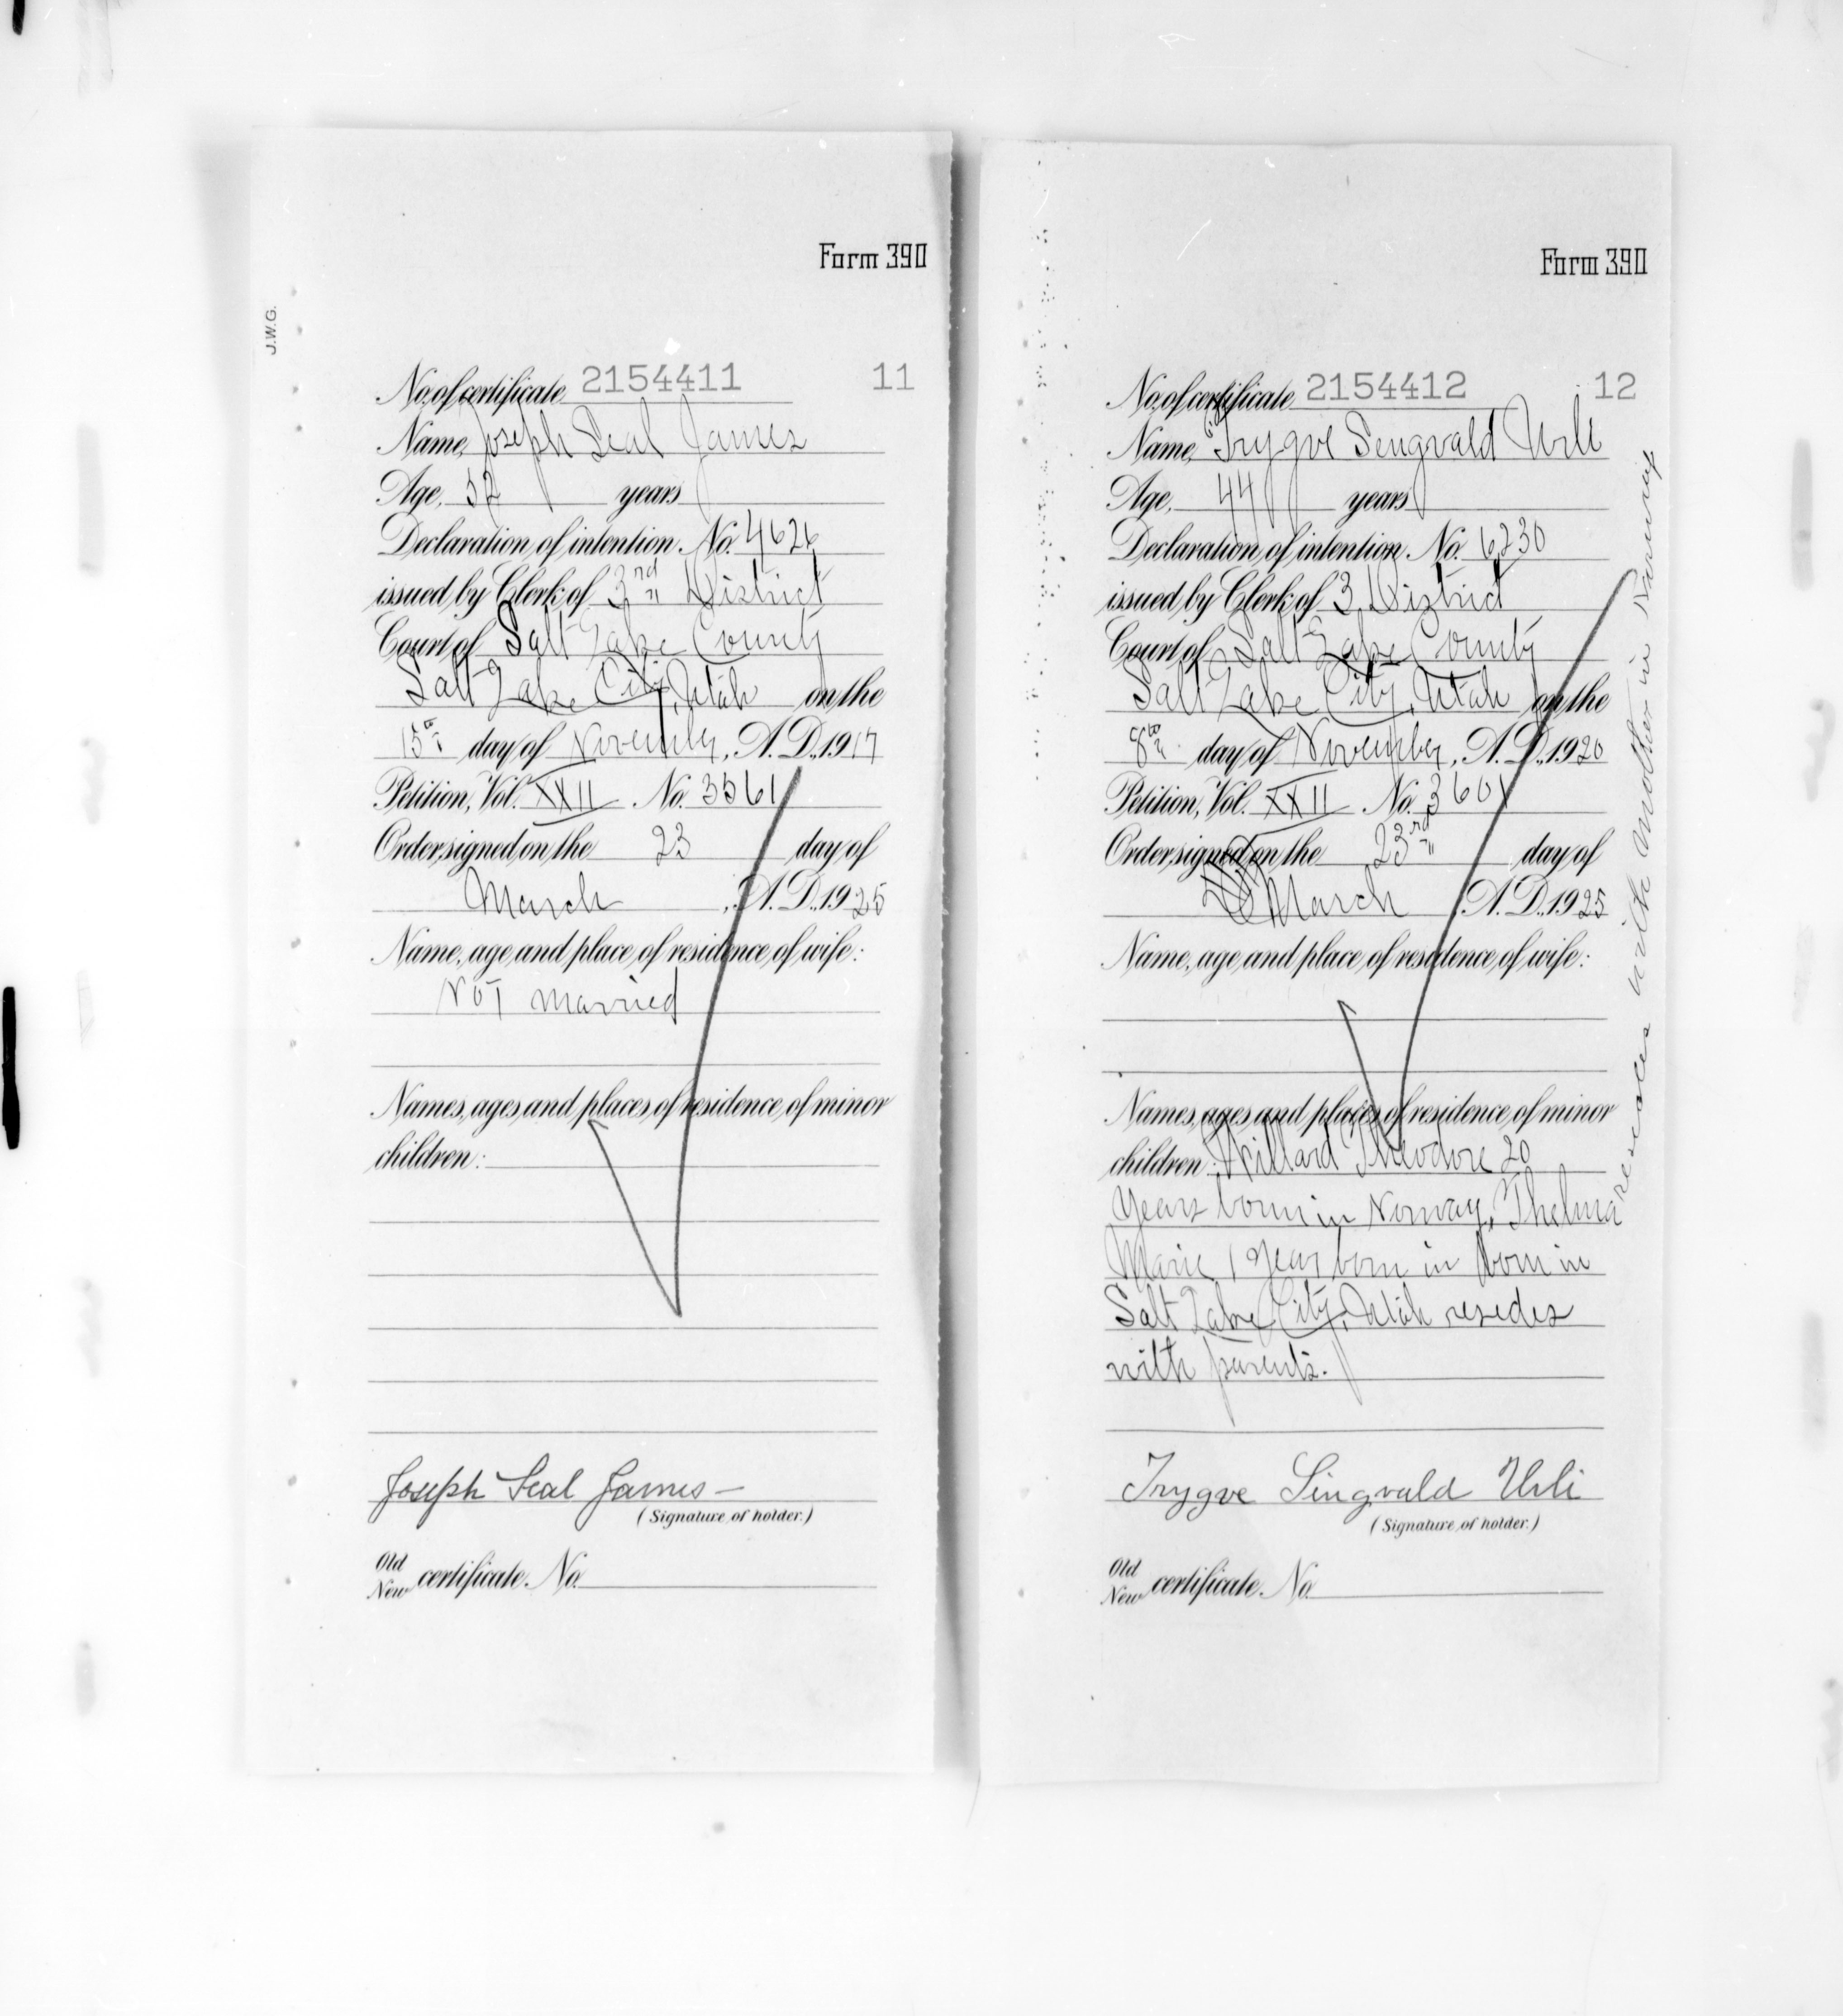 Form 390
J.W.G.
No. of certificate 2154411 11
Name, Joseph Seal James
Age, 52 years
Declaration of intention No. 4626
issued by Clerk of 3rd District
Court of Salt Lake County
Salt Lake City, Utah on the
15th day of November, A.D., 1917
Petition, Vol. XXII No. 3561
Order signed on the 23 day of
March, A.D., 1925
Name, age and place of residence of wife:
Not married
Names, ages and places of residence of minor
children:
Joseph Seal James
(Signature of holder.)
Old
New certificate No.
Form 390
No. of certificate 2154412 12
Name, Trygve Sengvald Urli
Age, 44 years
Declaration of intention No. 6230
issued by Clerk of 3 District
Court of Salt Lake County
Salt Lake City, Utah on the
8th day of November, A.D., 1920
Petition, Vol. XXII No. 3601
Order signed on the 23rd day of
March, A.D., 1925
Name, age and place of residence of wife:
Names, ages and places of residence of minor
children: Willard Theodore 20
years born in Norway, Thelma
Marie 1 year born in born in
Salt Lake City, Utah resedes
with parents.
resedes with mother in Norway
Trygve Singvald Urli
(Signature of holder.)
Old
New certificate No.